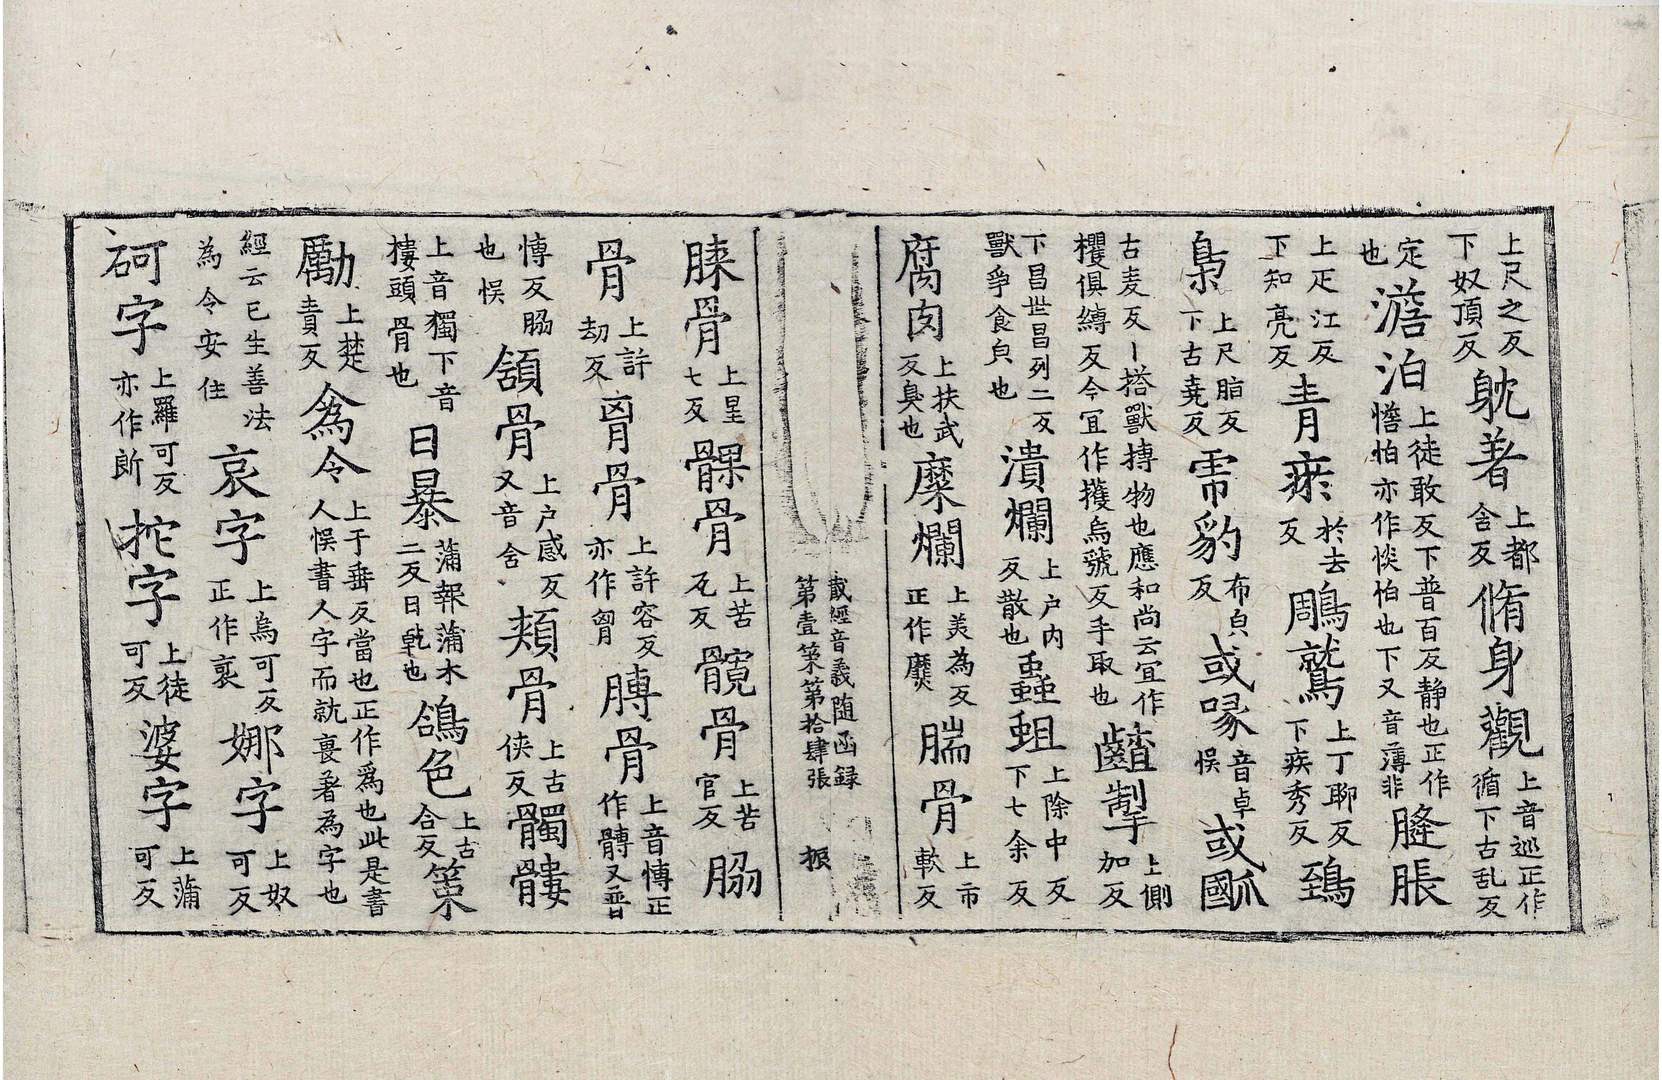 上尺之反下奴頂反躭著上都含反脩身觀上音巡正作循下古乱反
定也澹泊上徒敢反下普百反静也正作憺怕亦作惔怕也下又音薄非膖脹
上疋江反下知亮反青瘀於去反鵰鷲上丁聊反下疾秀反鵄
梟上尺脂反下古堯反虎豹布皃反或喙音卓悮或𤬛
古麦反丨搭獸摶物也應和尚云冝作欔俱縛反今冝作擭烏號反手取也齰掣上側加反
下昌世昌列二反獸爭食皃也潰爛上户内反散也蟲蛆上除中反下七余反
腐肉上扶武反臭也糜爛上美為反正作爢腨骨上市軟反
藏經音義随函録第壹第第拾肆張 振
𦟛骨上星七反髁骨上苦瓦反髖骨上苦官反脇
骨上許劫反胷骨上許容反亦作匈膊骨上音愽正作髆又普
愽反脇也悮頷骨上户感反又音含頬骨上古侠反髑髏
上音獨下音樓頭骨也日暴蒲報蒲木二反日乹也鴿色上古合反第
勵上楚責反為令上于垂反當也正作爲也此是書人悮書人字而就裹著為字也
經云已生善法為令安住哀字上烏可反正作褱娜字上奴可反
砢字上羅可反亦作𨚲拕字上徒可反婆字上蒲可反